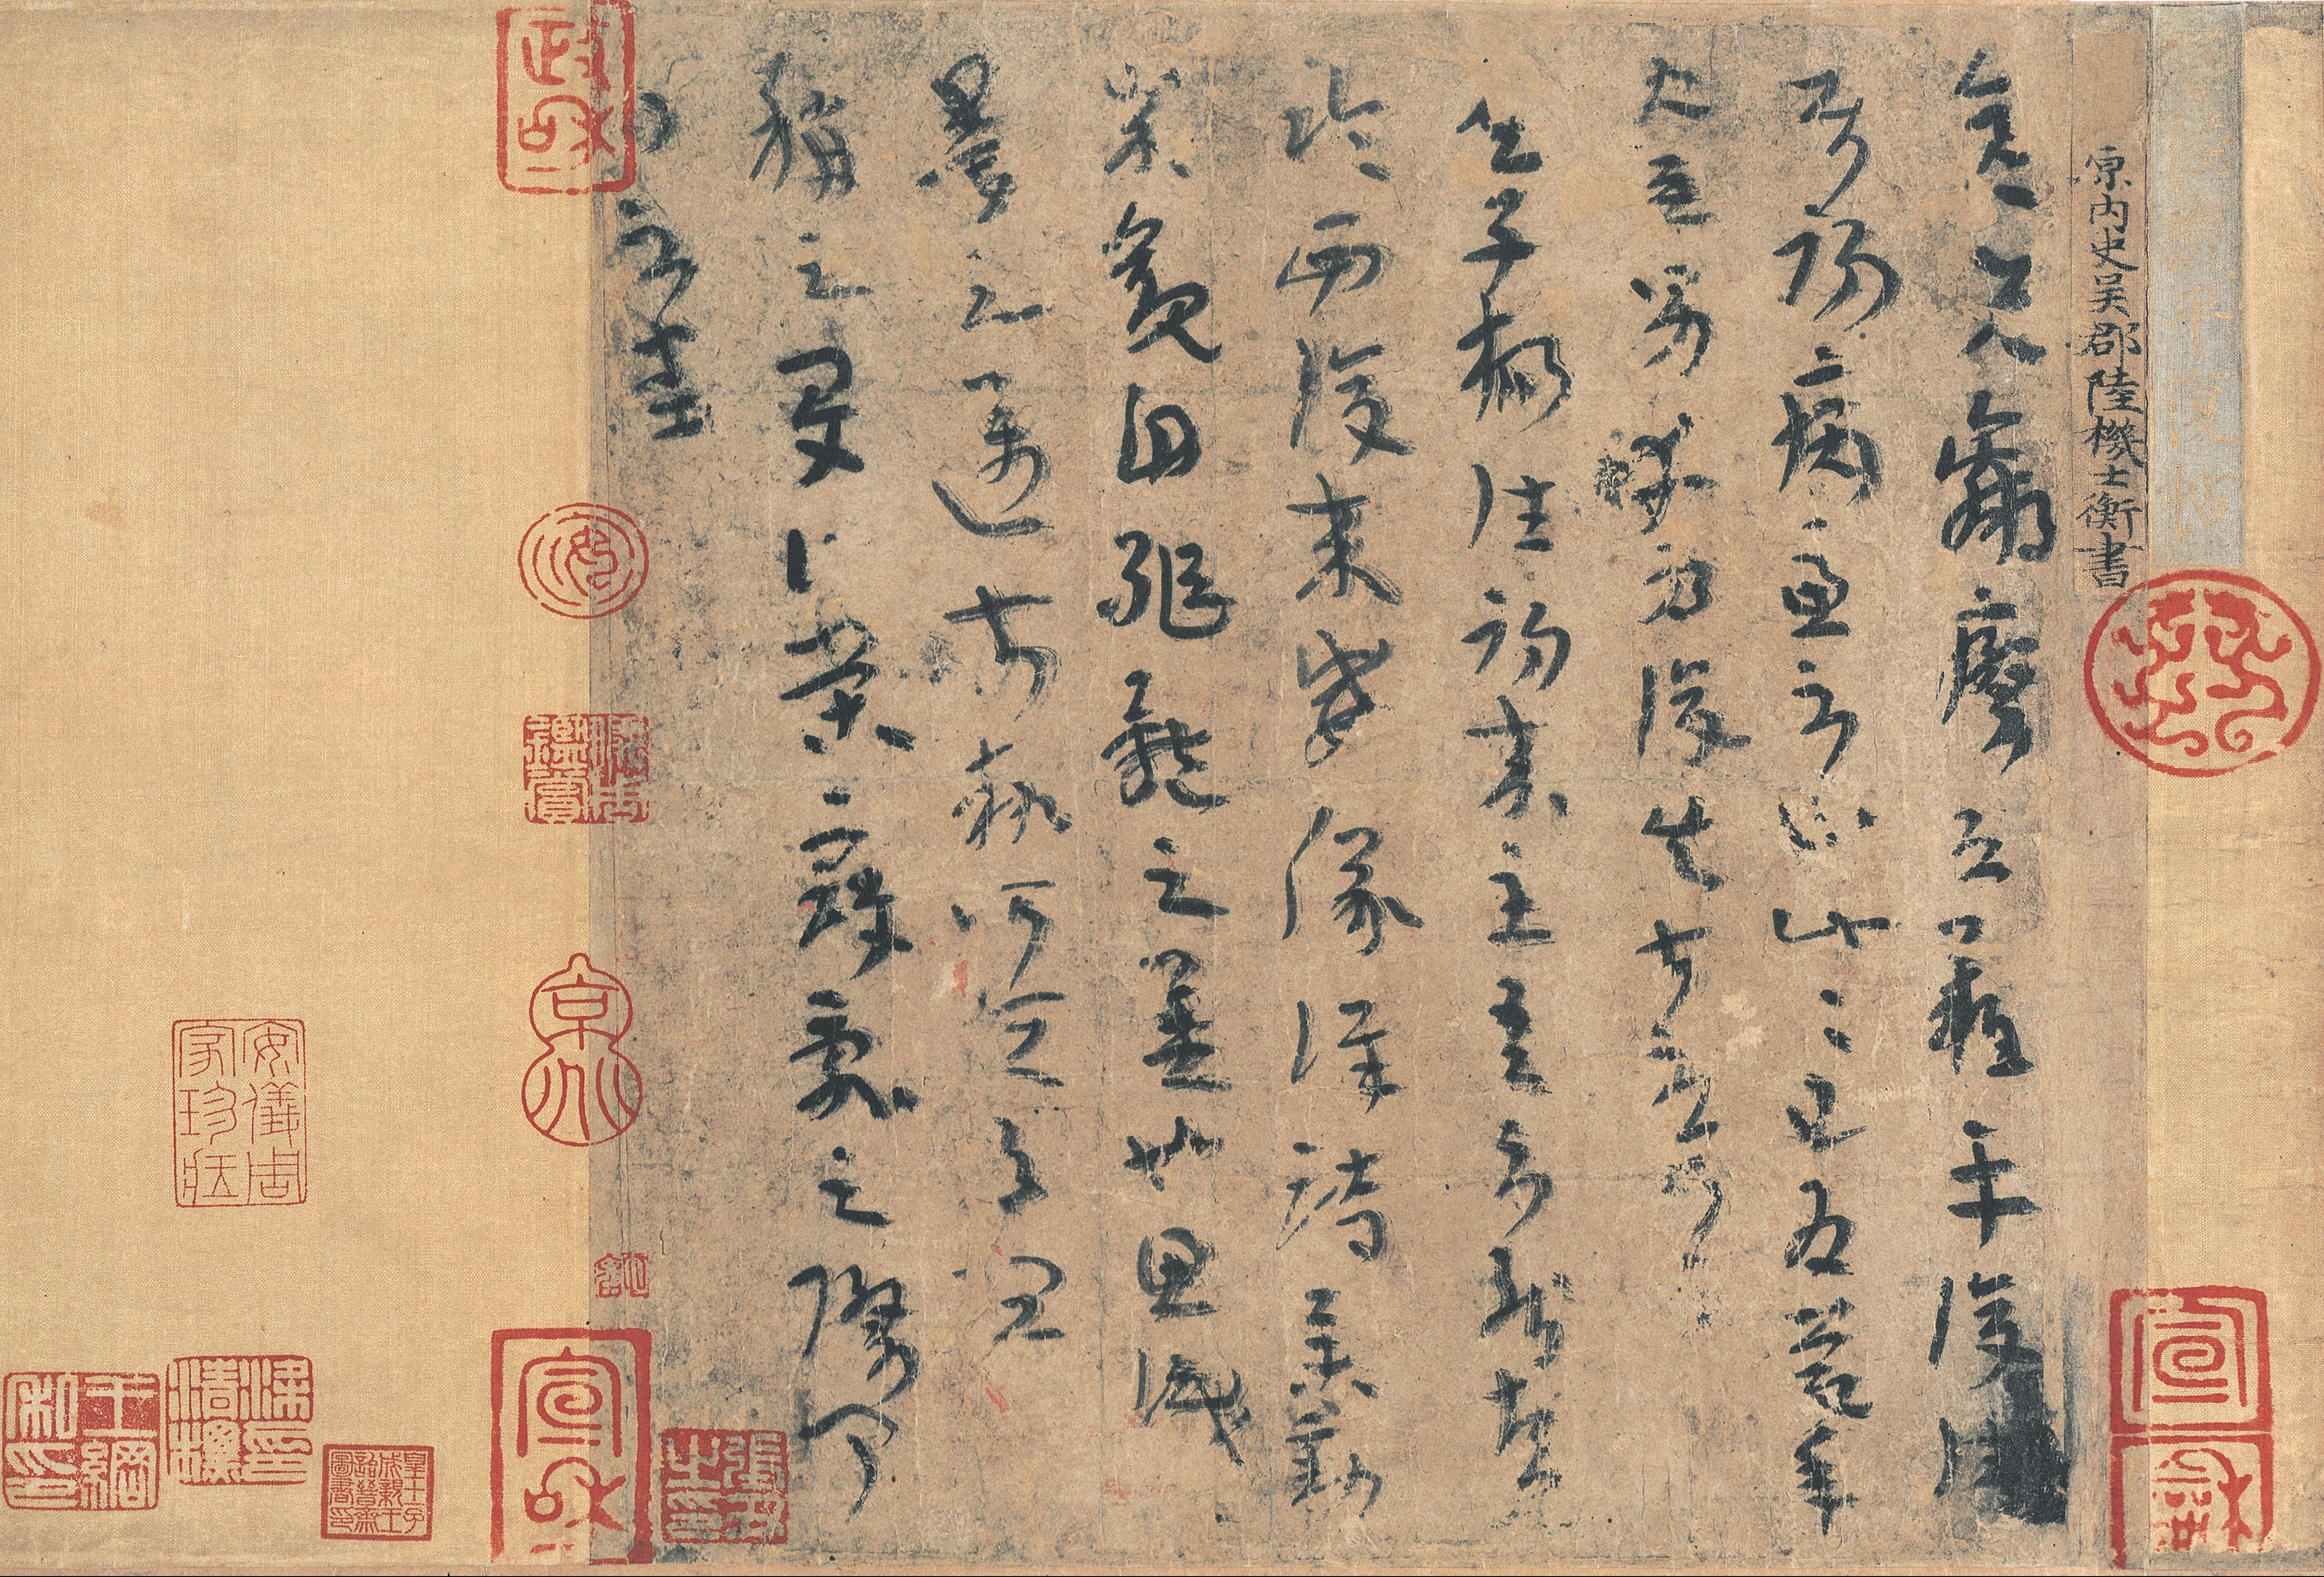 原內史吳郡陸機士衡書
彥先羸瘵恐難平復往
屬初病慮不止此此已為慶承
使唯男幸為復失前憂耳
吳子楊往初來主吾不能盡
臨西復來威儀詳跱舉動
成觀自軀體之美也思識
量之邁前執所恒有宜
稱之夏伯榮寇亂之際聞
問不悉
宣和
政和
宣和
安儀周家珍藏
皇十一子成親王詒晉齋圖書印